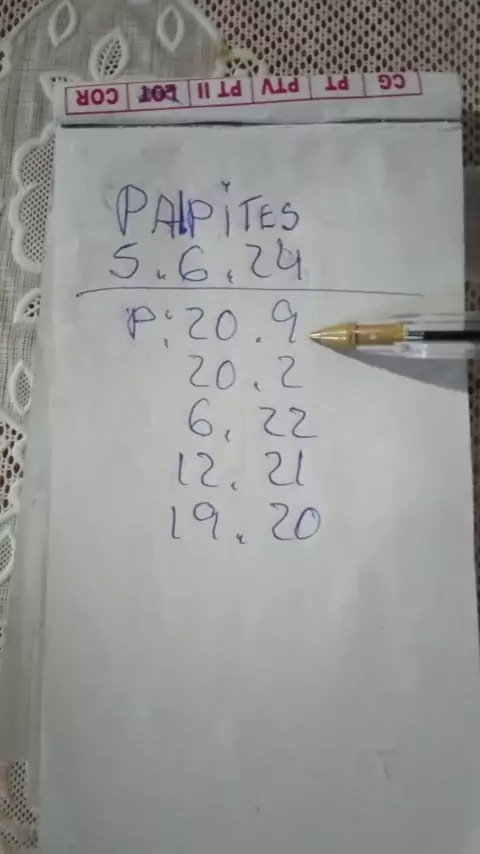 CG PT PTV PT II LOT COR
PALPITES
5.6.24
P: 20.9
20.2
6.22
12.21
19.20